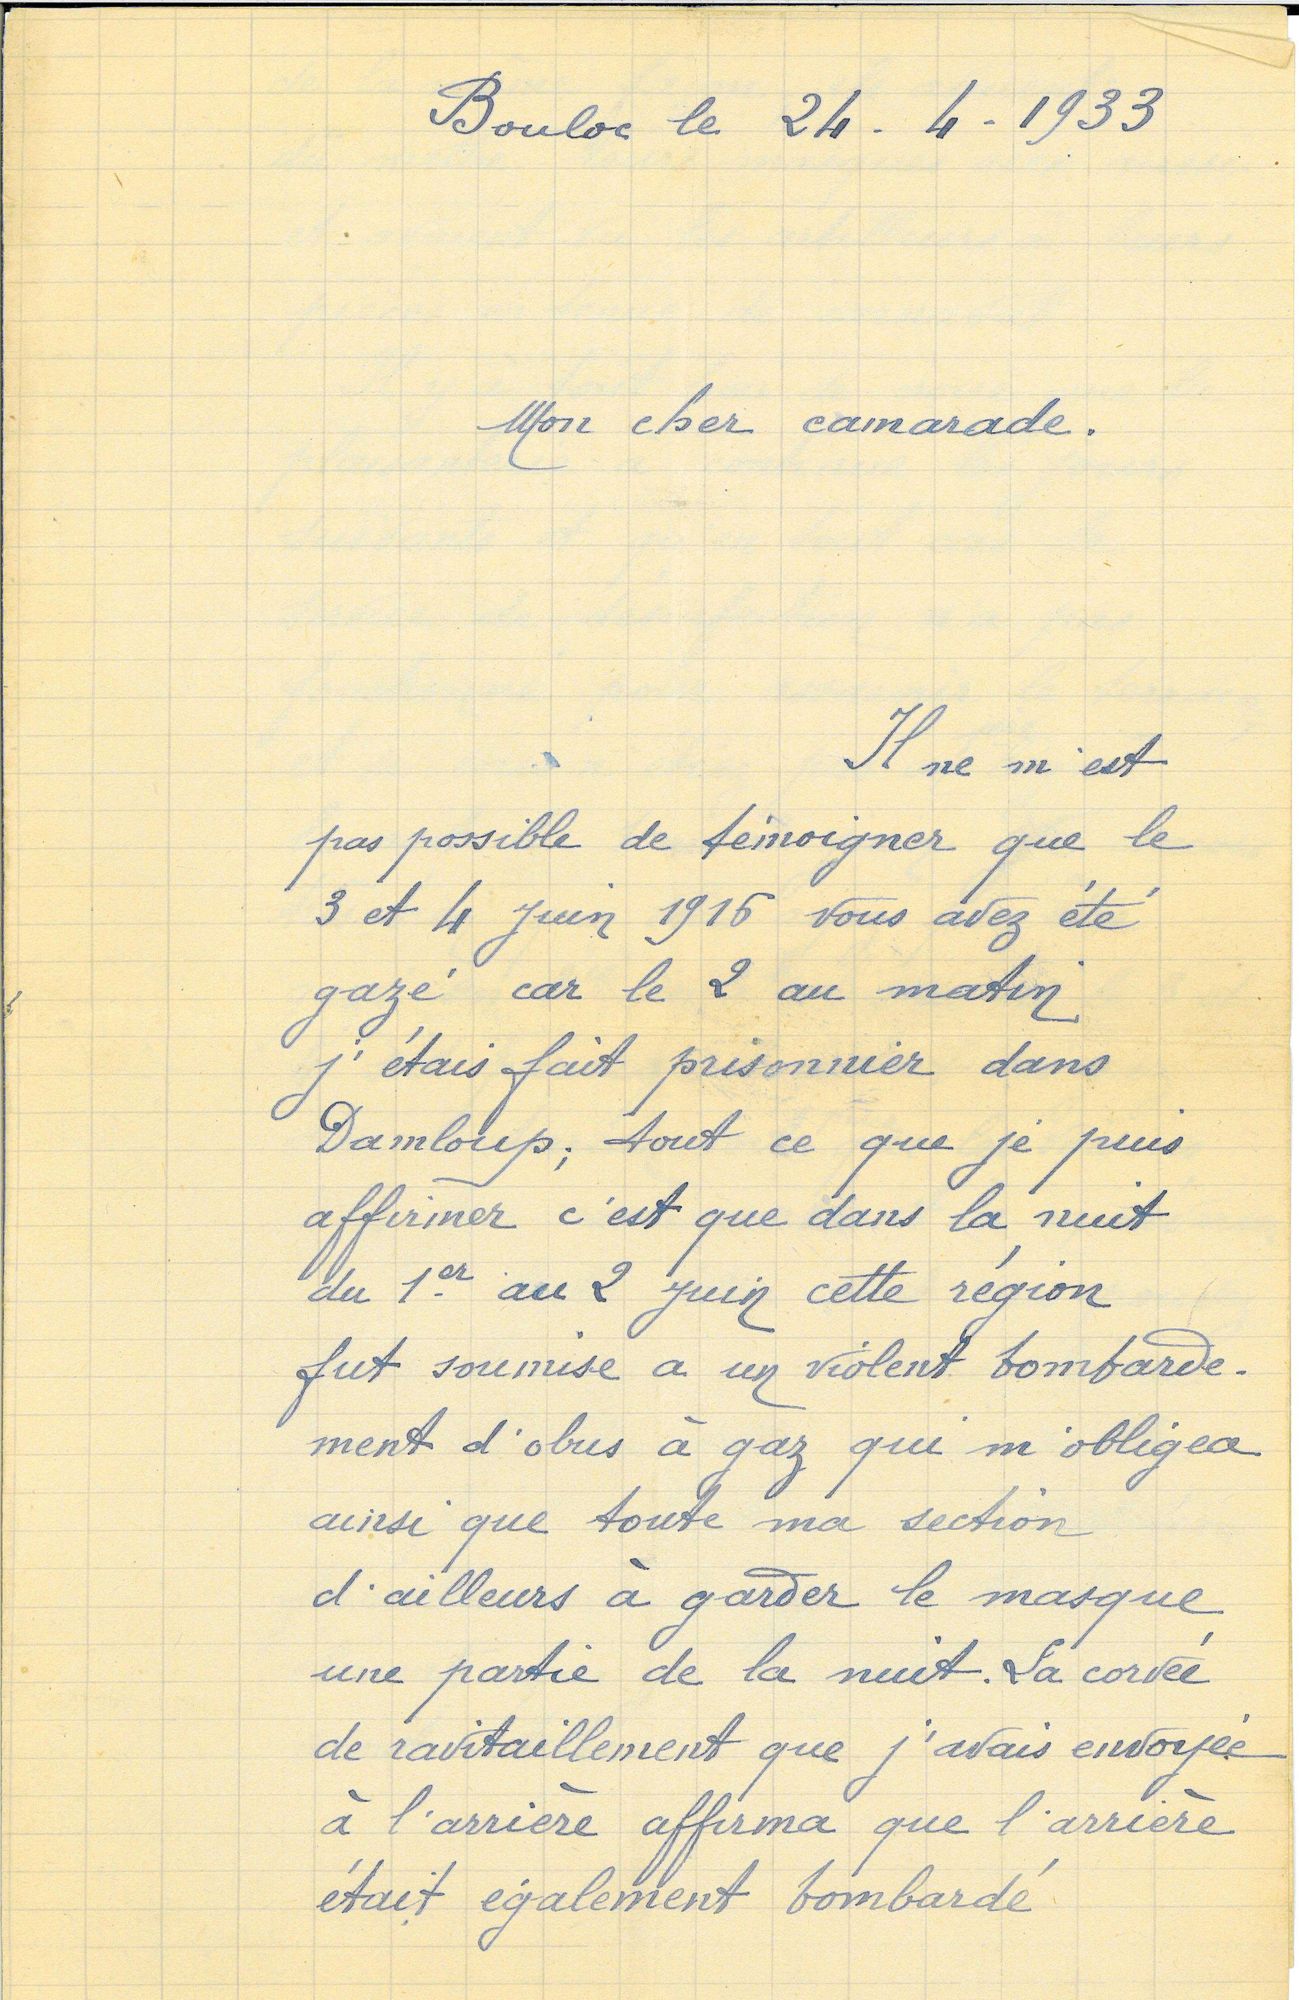 Bouloc le 24. 4. 1933
Mon cher camarade.
Il ne m'est
pas possible de témoigner que le
3 et 4 juin 1916 vous avez été
gazé car le 2 au matin
j'étais fait prisonnier dans
Damloup; tout ce que je puis
affirmer c'est que dans la nuit
du 1er au 2 juin cette région
fut soumise a un violent bombarde-
ment d'obus à gaz qui m'obligea
ainsi que toute ma section
d'ailleurs à garder le masque
une partie de la nuit. La corvée
de ravitaillement que j'avais envoyée
à l'arrière affirma que l'arrière
était également bombardé